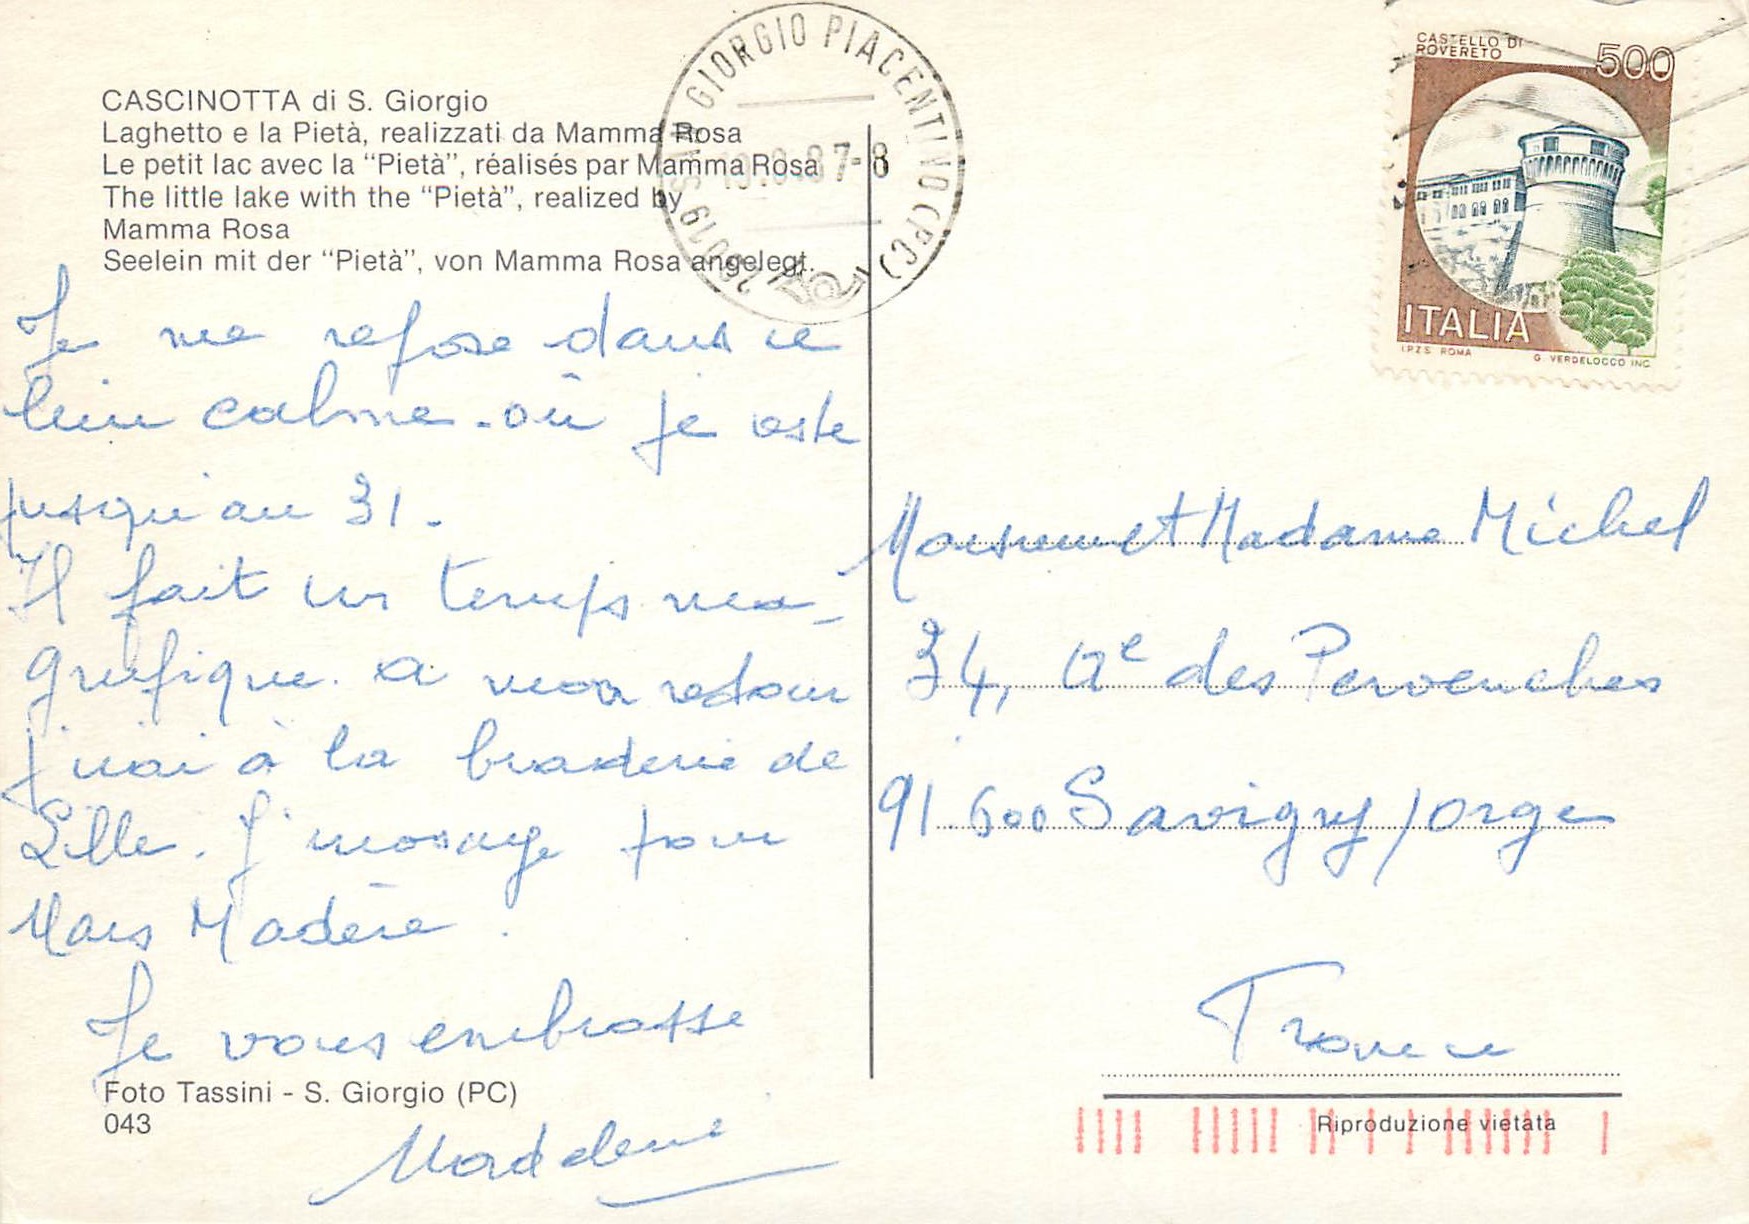 CASCINOTTA di S. Giorgio
Laghetto e la Pietà, realizzati da Mamma Rosa
Le petit lac avec la “Pietà”, réalisés par Mamma Rosa
The little lake with the “Pietà”, realized by
Mamma Rosa
Seelein mit der “Pietà”, von Mamma Rosa angelegt.
Je me repose dans ce
lieu calme. où je reste
jusqu'au 31.
Il fait un temps ma-
gnifique. A mon retour
j'irai à la braderie de
Lille. J' pour
Madère.
Je vous embrasse
Madeleine
Foto Tassini - S. Giorgio (PC)
043
29019 SAN GIORGIO PIACENTINO (PC)
87-8
CASTELLO DI
ROVERETO
500
ITALIA
I.P.Z.S. ROMA G. VERDELOCCO INC.
Monsieur et Madame Michel
34, des Pervenches
91.600 Savigny/Orge
France
Riproduzione vietata